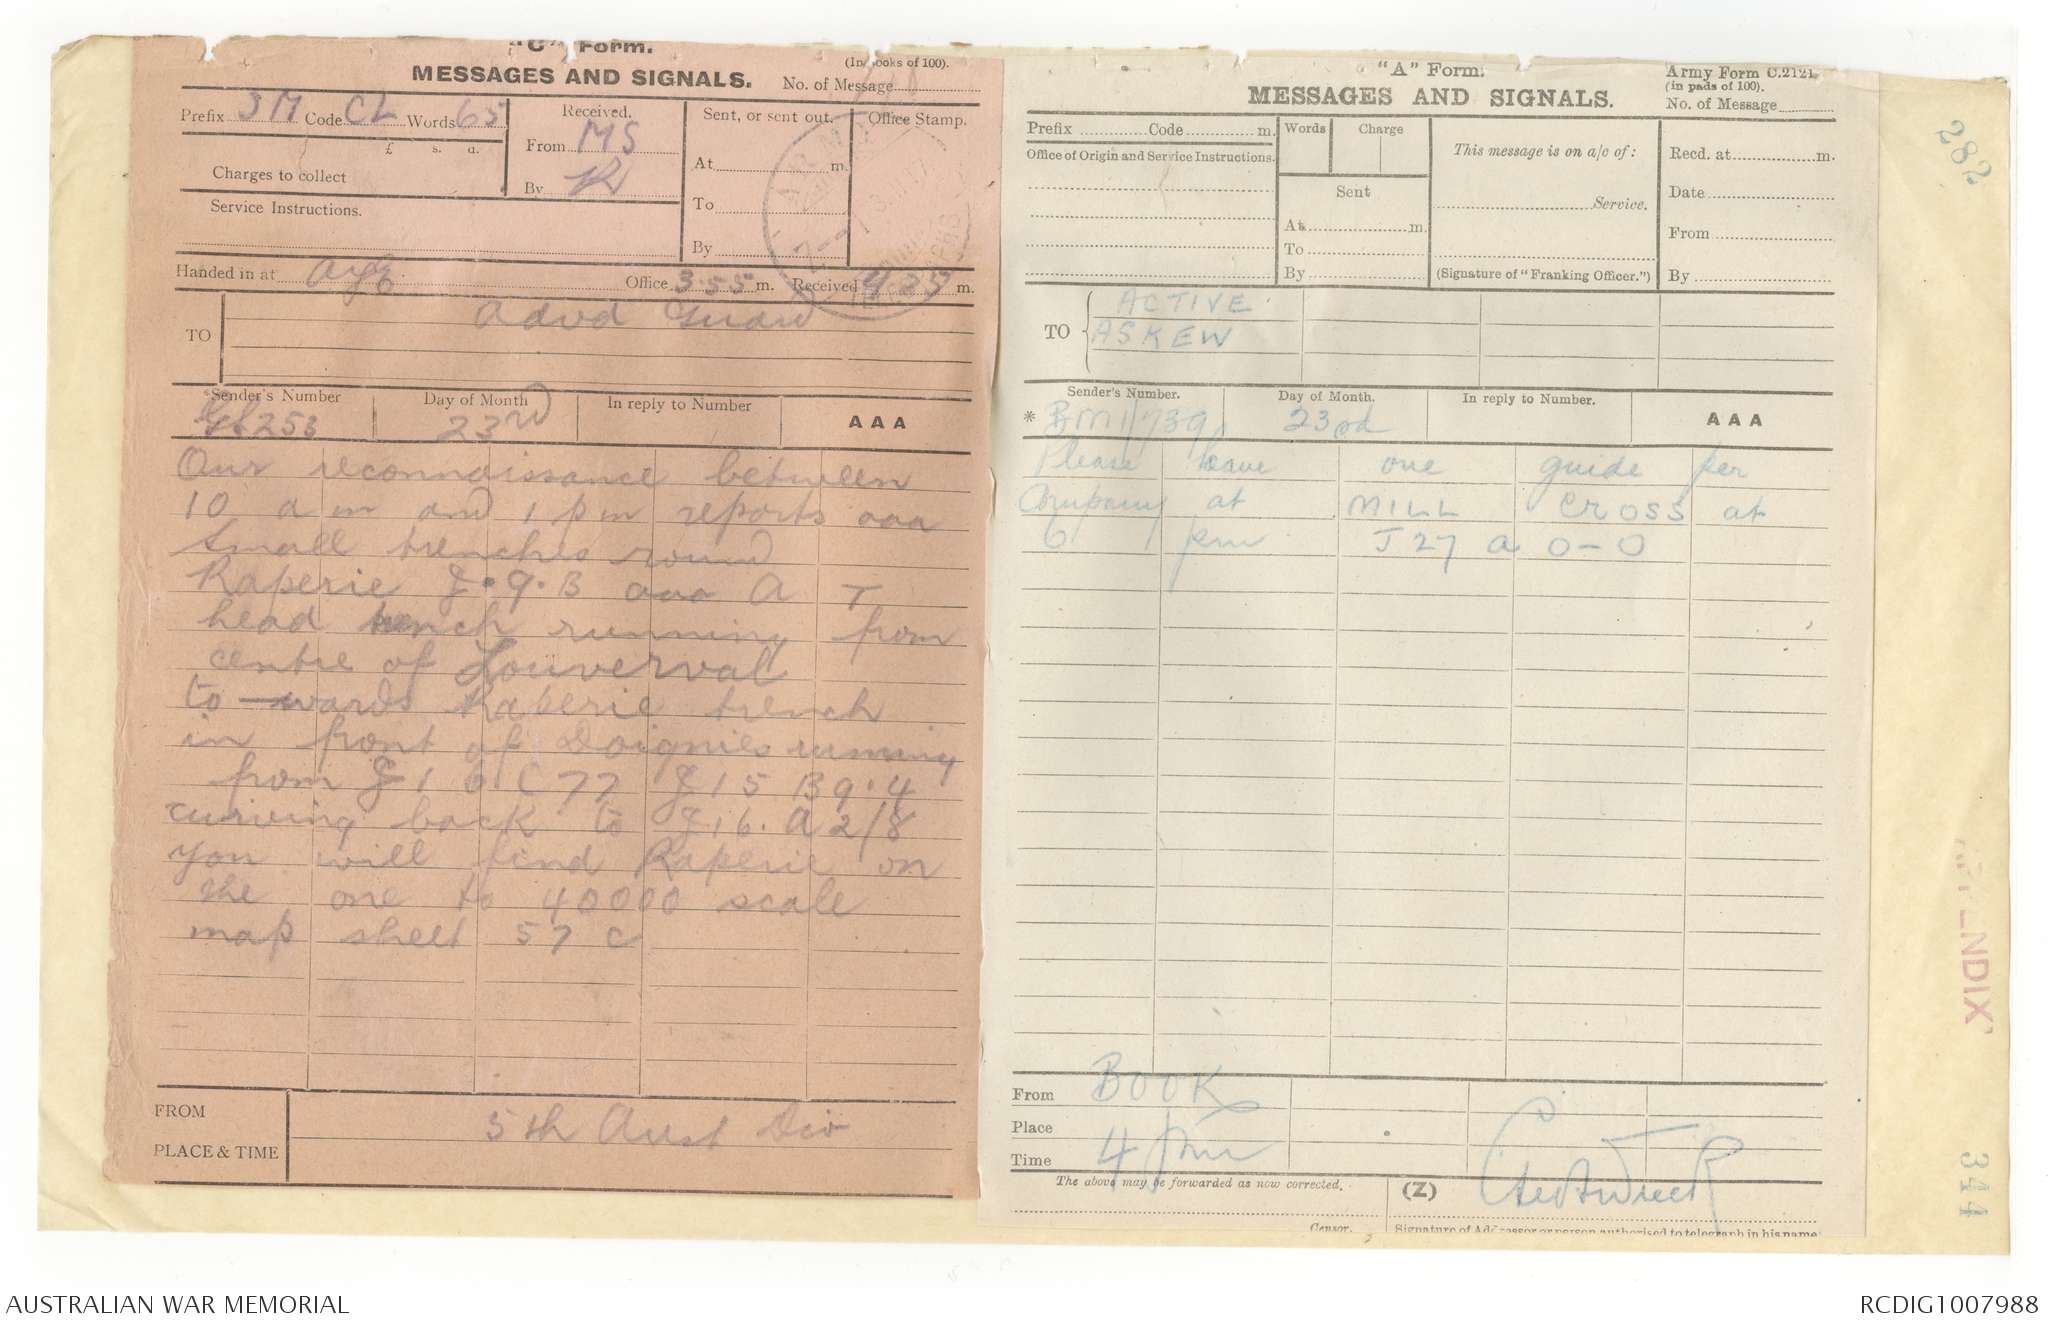 "C" Form.
MESSAGES AND SIGNALS.
(In books of 100).
No. of Message
Prefix SM Code CL Words 65
£ s. d.
Charges to collect
Service Instructions.
Received.
From MS
By
Sent, or sent out.
At m.
To
By
Office Stamp.
Handed in at Office 3.55 m. Received 4.25 m.
TO Advd Guard
*Sender's Number
253
Day of Month
23rd
In reply to Number
AAA
Our reconnaissance between
10 am and 1 pm reports aaa
Small trenches round
Raperie J.9.B aaa A T
head trench running from
centre of Louverval
to-wards Raperie trench
in front of Doignies running
from J 1 6 C 77 J 15 B 9.4
curving back to J16. A 2/8
you will find Raperie on
the one to 40000 scale
map sheet 57 C
FROM 5th Aust Div
PLACE & TIME
"A" Form.
MESSAGES AND SIGNALS.
Army Form C.2121
(in pads of 100).
No. of Message
Prefix Code m.
Office of Origin and Service Instructions.
Words Charge
Sent
At m.
To
By
This message is on a/c of:
Service.
(Signature of "Franking Officer.")
Recd. at m.
Date
From
By
TO ACTIVE
ASKEW
Sender's Number.
* BM1/739
Day of Month.
23rd
In reply to Number.
AAA
Please have one guide per
Company at MILL CROSS at
6 pm J 27 a 0-0
From BOOK
Place
Time 4 pm
The above may be forwarded as now corrected.
(Z)
Censor.
Signature of Addressor or person authorised to telegraph in his name
282
344
AUSTRALIAN WAR MEMORIAL
RCDIG1007988